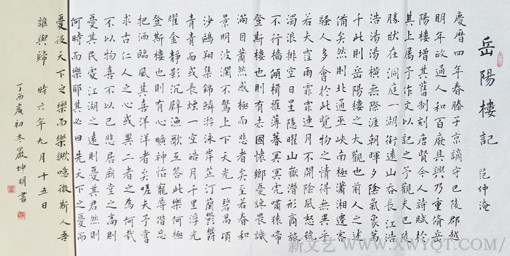 岳陽樓記 范仲淹
慶曆四年春滕子京謫守巴陵郡越
明年政通人和百廢具興乃重脩岳
陽樓增其舊制刻唐賢今人詩賦於
其上屬予作文以記之予觀夫巴陵
勝狀在洞庭一湖銜遠山吞長江浩
浩湯湯橫無際涯朝暉夕陰氣象萬
千此則岳陽樓之大觀也前人之述
備矣然則北通巫峽南極瀟湘遷客
騷人多會於此覽物之情得無異乎
若夫霪雨霏霏連月不開陰風怒號
濁浪排空日星隱曜山嶽潛形商旅
不行檣傾楫摧薄暮冥冥虎嘯猿啼
登斯樓也則有去國懷鄉憂讒畏譏
滿目蕭然感極而悲者矣至若春和
景明波瀾不驚上下天光一碧萬頃
沙鷗翔集錦鱗游泳岸芷汀蘭鬱鬱
青青而或長煙一空皓月千里浮光
耀金靜影沉璧漁歌互答此樂何極
登斯樓也則有心曠神怡寵辱偕忘
把酒臨風其喜洋洋者矣嗟夫予嘗
求古仁人之心或異二者之為何哉
不以物喜不以己悲居廟堂之高則
憂其民處江湖之遠則憂其君然則
何時而樂耶其必曰先天下之憂而
憂後天下之樂而樂歟噫微斯人吾
誰與歸 時六年九月十五日
丁酉歲初冬嚴坤明書
新文艺 WWW.XWYQT.COM/